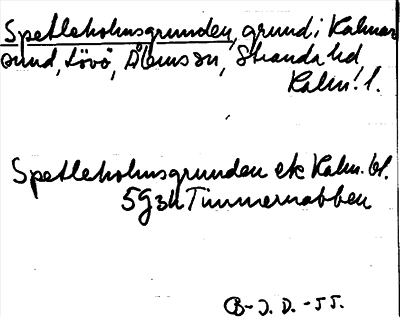 Spetleholmsgrunden, grund i Kalmar
sund, Lövö, Ålemssn, Stranda hd
Kalm. l.
Spetleholmsgrunden ek Kalm. bl.
5g3h Timmernabben
B-J. D. -55.